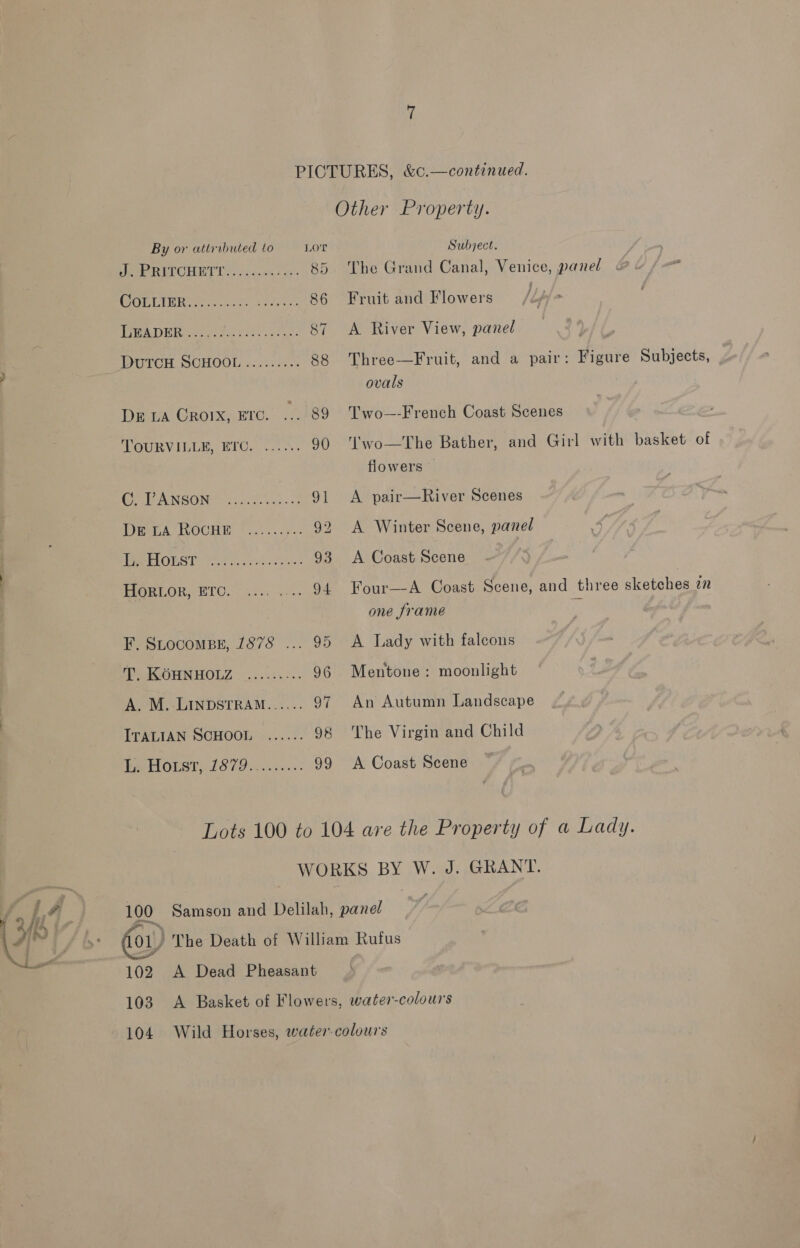 7
PICTURES, &c.—continued.
Other Property.
By or attributed to LOT Subject.
J. PRITCHETT............ 85 The Grand Canal, Venice, panel
COLLIER.................. 86 Fruit and Flowers
LEADER .................. 87 A River View, panel
DUTCH SCHOOL ......... 88 Three—Fruit, and a pair: Figure Subjects,
ovals
DE LA CROIX, ETC. ... 89 Two—French Coast Scenes
TOURVILLE, ETC. ...... 90 Two—The Bather, and Girl with basket of
flowers
C. I'ANSON ............ 91 A pair—River Scenes
DE LA ROCHE ......... 92 A Winter Scene, panel
L. HOLST ............... 93 A Coast Scene
HORLOR, ETC. .... .... 94 Four—A Coast Scene, and three sketches in
one frame
F. SLOCOMBE, 1878 ... 95 A Lady with falcons
T. KÖHNHOLZ ......... 96 Mentone: moonlight
A. M. LINDSTRAM...... 97 An Autumn Landscape
ITALIAN SCHOOL ...... 98 The Virgin and Child
L. HOLST, 1879......... 99 A Coast Scene
Lots 100 to 104 are the Property of a Lady.
WORKS BY W. J. GRANT.
100 Samson and Delilah, panel
101 The Death of William Rufus
102 A Dead Pheasant
103 A Basket of Flowers, water-colours
104 Wild Horses, water-colours